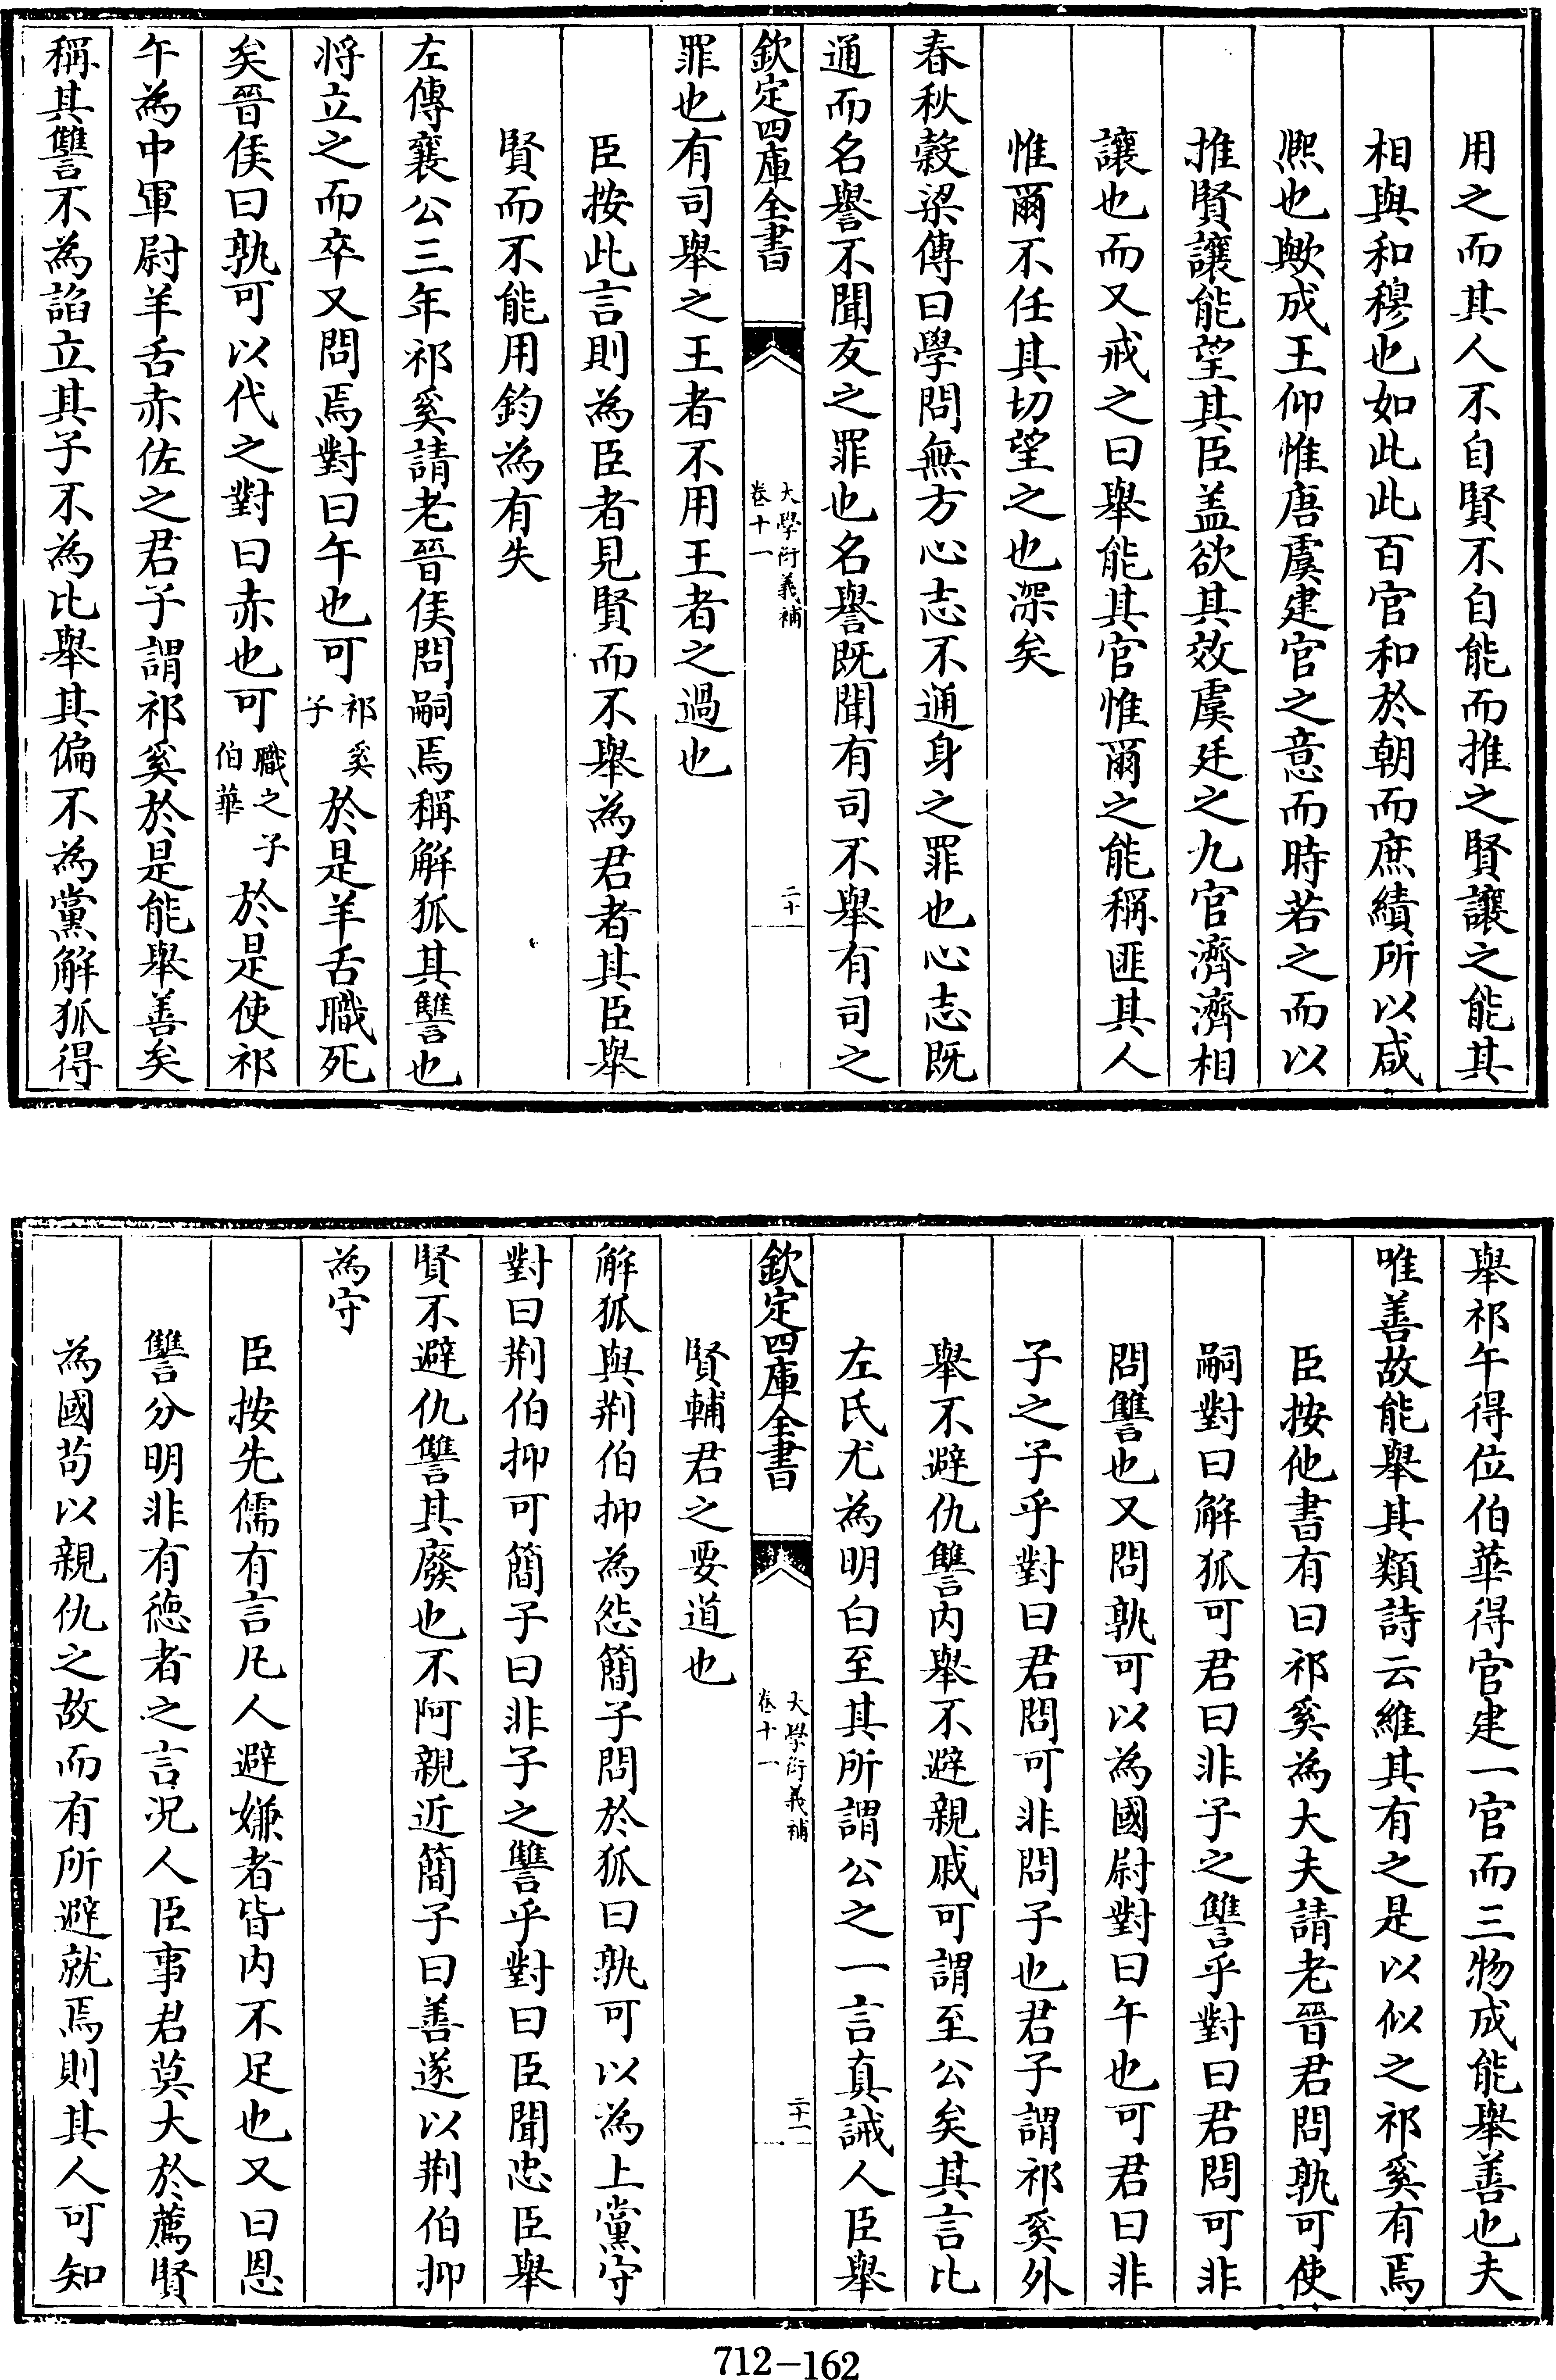 用之而其人不自賢不自能而推之賢讓之能其
相與和穆也如此此百官和於朝而庶績所以咸
熈也歟成王仰惟唐虞建官之意而時若之而以
推賢讓能望其臣盖欲其效虞廷之九官濟濟相
讓也而又戒之曰舉能其官惟爾之能稱匪其人
惟爾不任其切望之也深矣
春秋穀梁傳曰學問無方心志不通身之罪也心志既
通而名譽不聞友之罪也名譽既聞有司不舉有司之
欽定四庫全書
大學衍義補
卷十一
二十
罪也有司舉之王者不用王者之過也
臣按此言則為臣者見賢而不舉為君者其臣舉
賢而不能用鈞為有失
左傳襄公三年祁奚請老晉侯問嗣焉稱解狐其讐也
将立之而卒又問焉對曰午也可祁奚子於是羊舌職死
矣晉侯曰孰可以代之對曰赤也可職之子伯華於是使祁
午為中軍尉羊舌赤佐之君子謂祁奚於是能舉善矣
稱其讐不為謟立其子不為比舉其偏不為黨解狐得
舉祁午得位伯華得官建一官而三物成能舉善也夫
唯善故能舉其類詩云維其有之是以似之祁奚有焉
臣按他書有曰祁奚為大夫請老晉君問孰可使
嗣對曰解狐可君曰非子之讐乎對曰君問可非
問讐也又問孰可以為國尉對曰午也可君曰非
子之子乎對曰君問可非問子也君子謂祁奚外
舉不避仇讐内舉不避親戚可謂至公矣其言比
左氏尤為明白至其所謂公之一言真誠人臣舉
欽定四庫全書
大學衍義補
卷十一
二十一
賢輔君之要道也
解狐與荆伯抑為怨簡子問於狐曰孰可以為上黨守
對曰荆伯抑可簡子曰非子之讐乎對曰臣聞忠臣舉
賢不避仇讐其廢也不阿親近簡子曰善遂以荆伯抑
為守
臣按先儒有言凡人避嫌者皆内不足也又曰恩
讐分明非有德者之言况人臣事君莫大於薦賢
為國苟以親仇之故而有所避就焉則其人可知
712–162